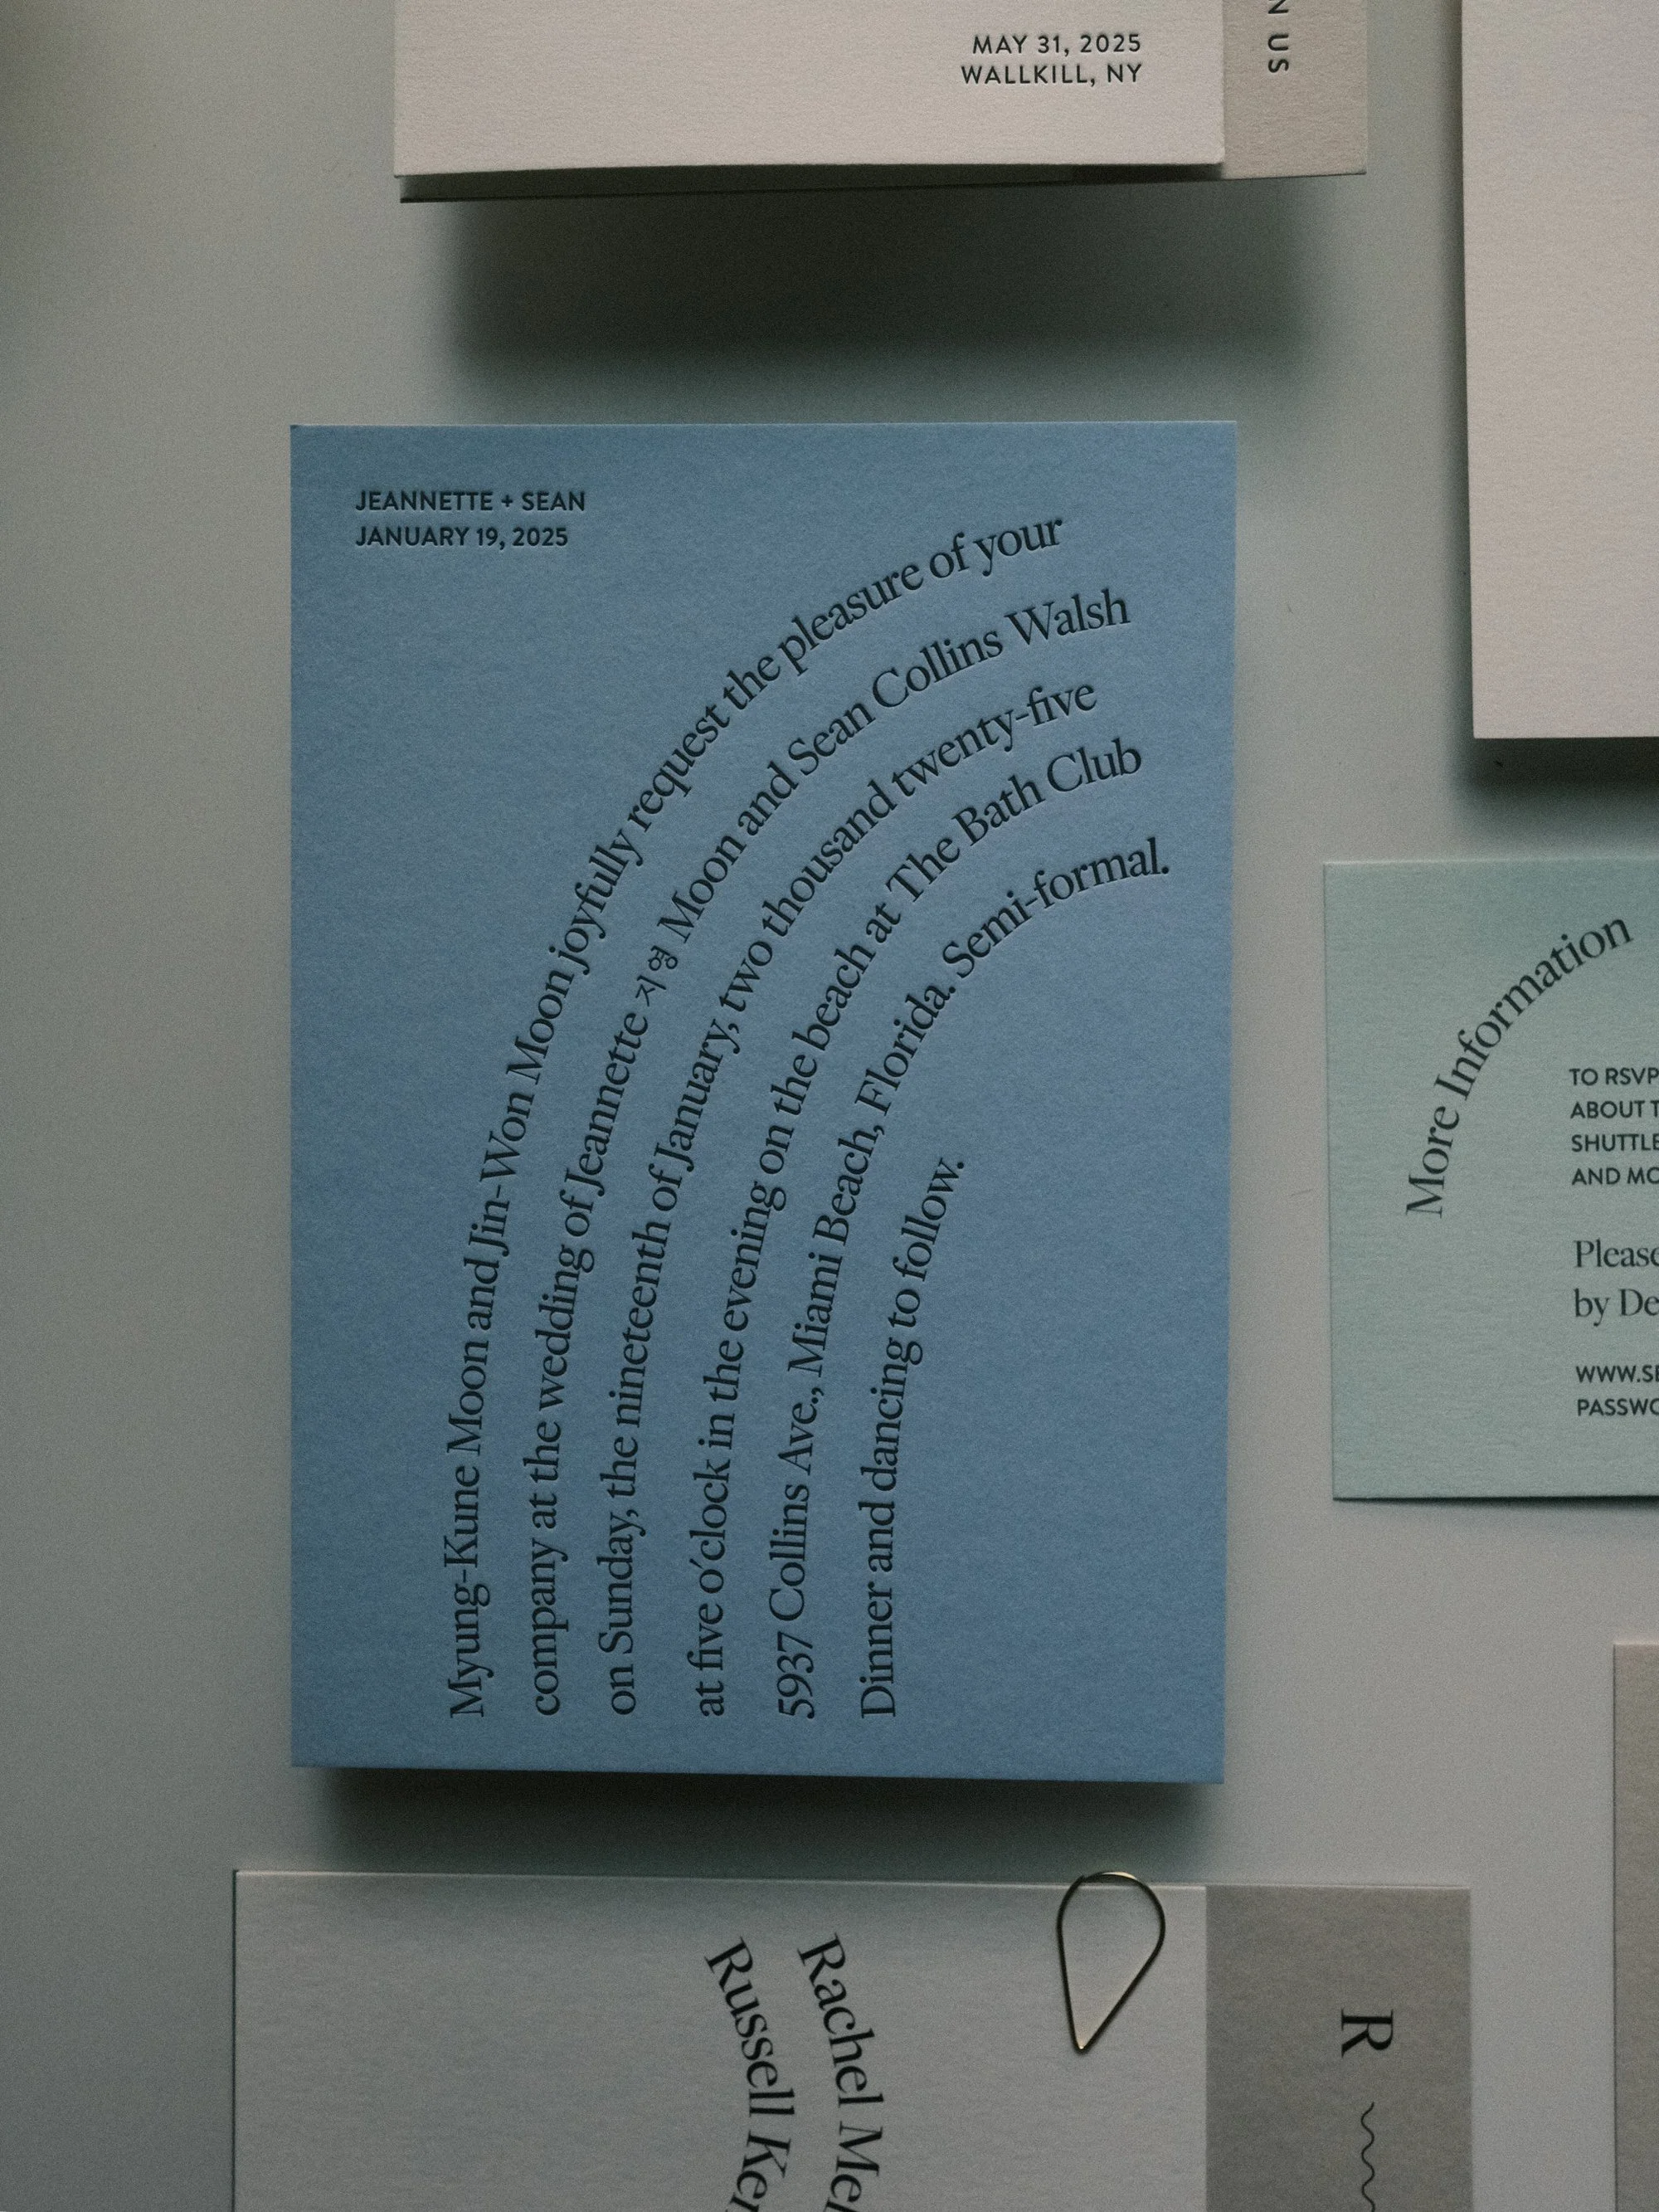 MAY 31, 2025
WALLKILL, NY
US
JEANNETTE + SEAN
JANUARY 19, 2025
Myung-Kune Moon and Jin-Won Moon joyfully request the pleasure of your
company at the wedding of Jeannette 지영 Moon and Sean Collins Walsh
on Sunday, the nineteenth of January, two thousand twenty-five
at five o'clock in the evening on the beach at The Bath Club
5937 Collins Ave., Miami Beach, Florida. Semi-formal.
Dinner and dancing to follow.
More Information
TO RSVP
ABOUT
SHUTTLE
AND
Please
by
Rachel
Russell
R